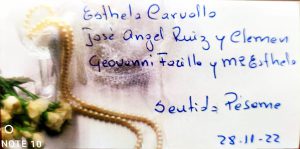 Esthela Carvallo
José Angel Ruiz y Clemen
Geovanni Facillo y Mª Esthela
Sentido Pesame
28-11-22
NOTE 10